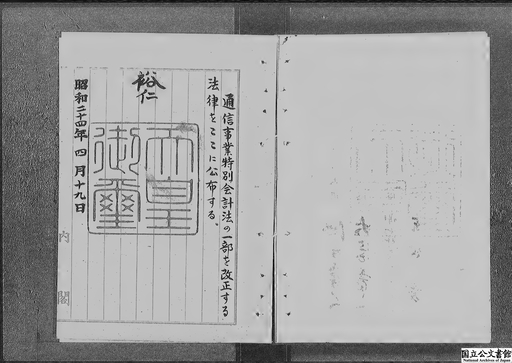 通信事業特別会計法の一部を改正する
法律をここに公布する。
裕仁
天皇
御璽
昭和二十四年四月十九日
内閣
国立公文書館
National Archives of Japan